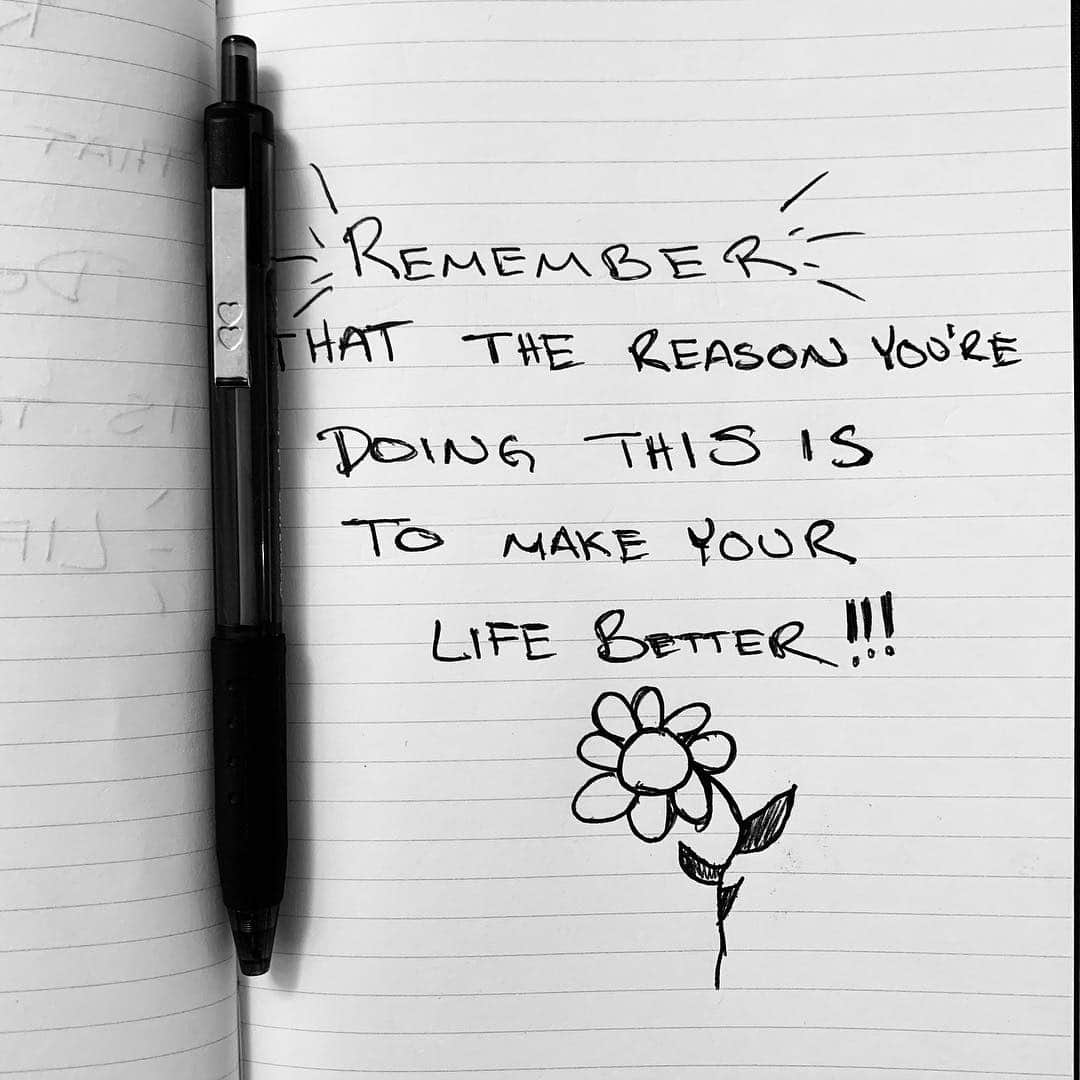 REMEMBER
THAT THE REASON YOU'RE
DOING THIS IS
TO MAKE YOUR
LIFE BETTER!!!